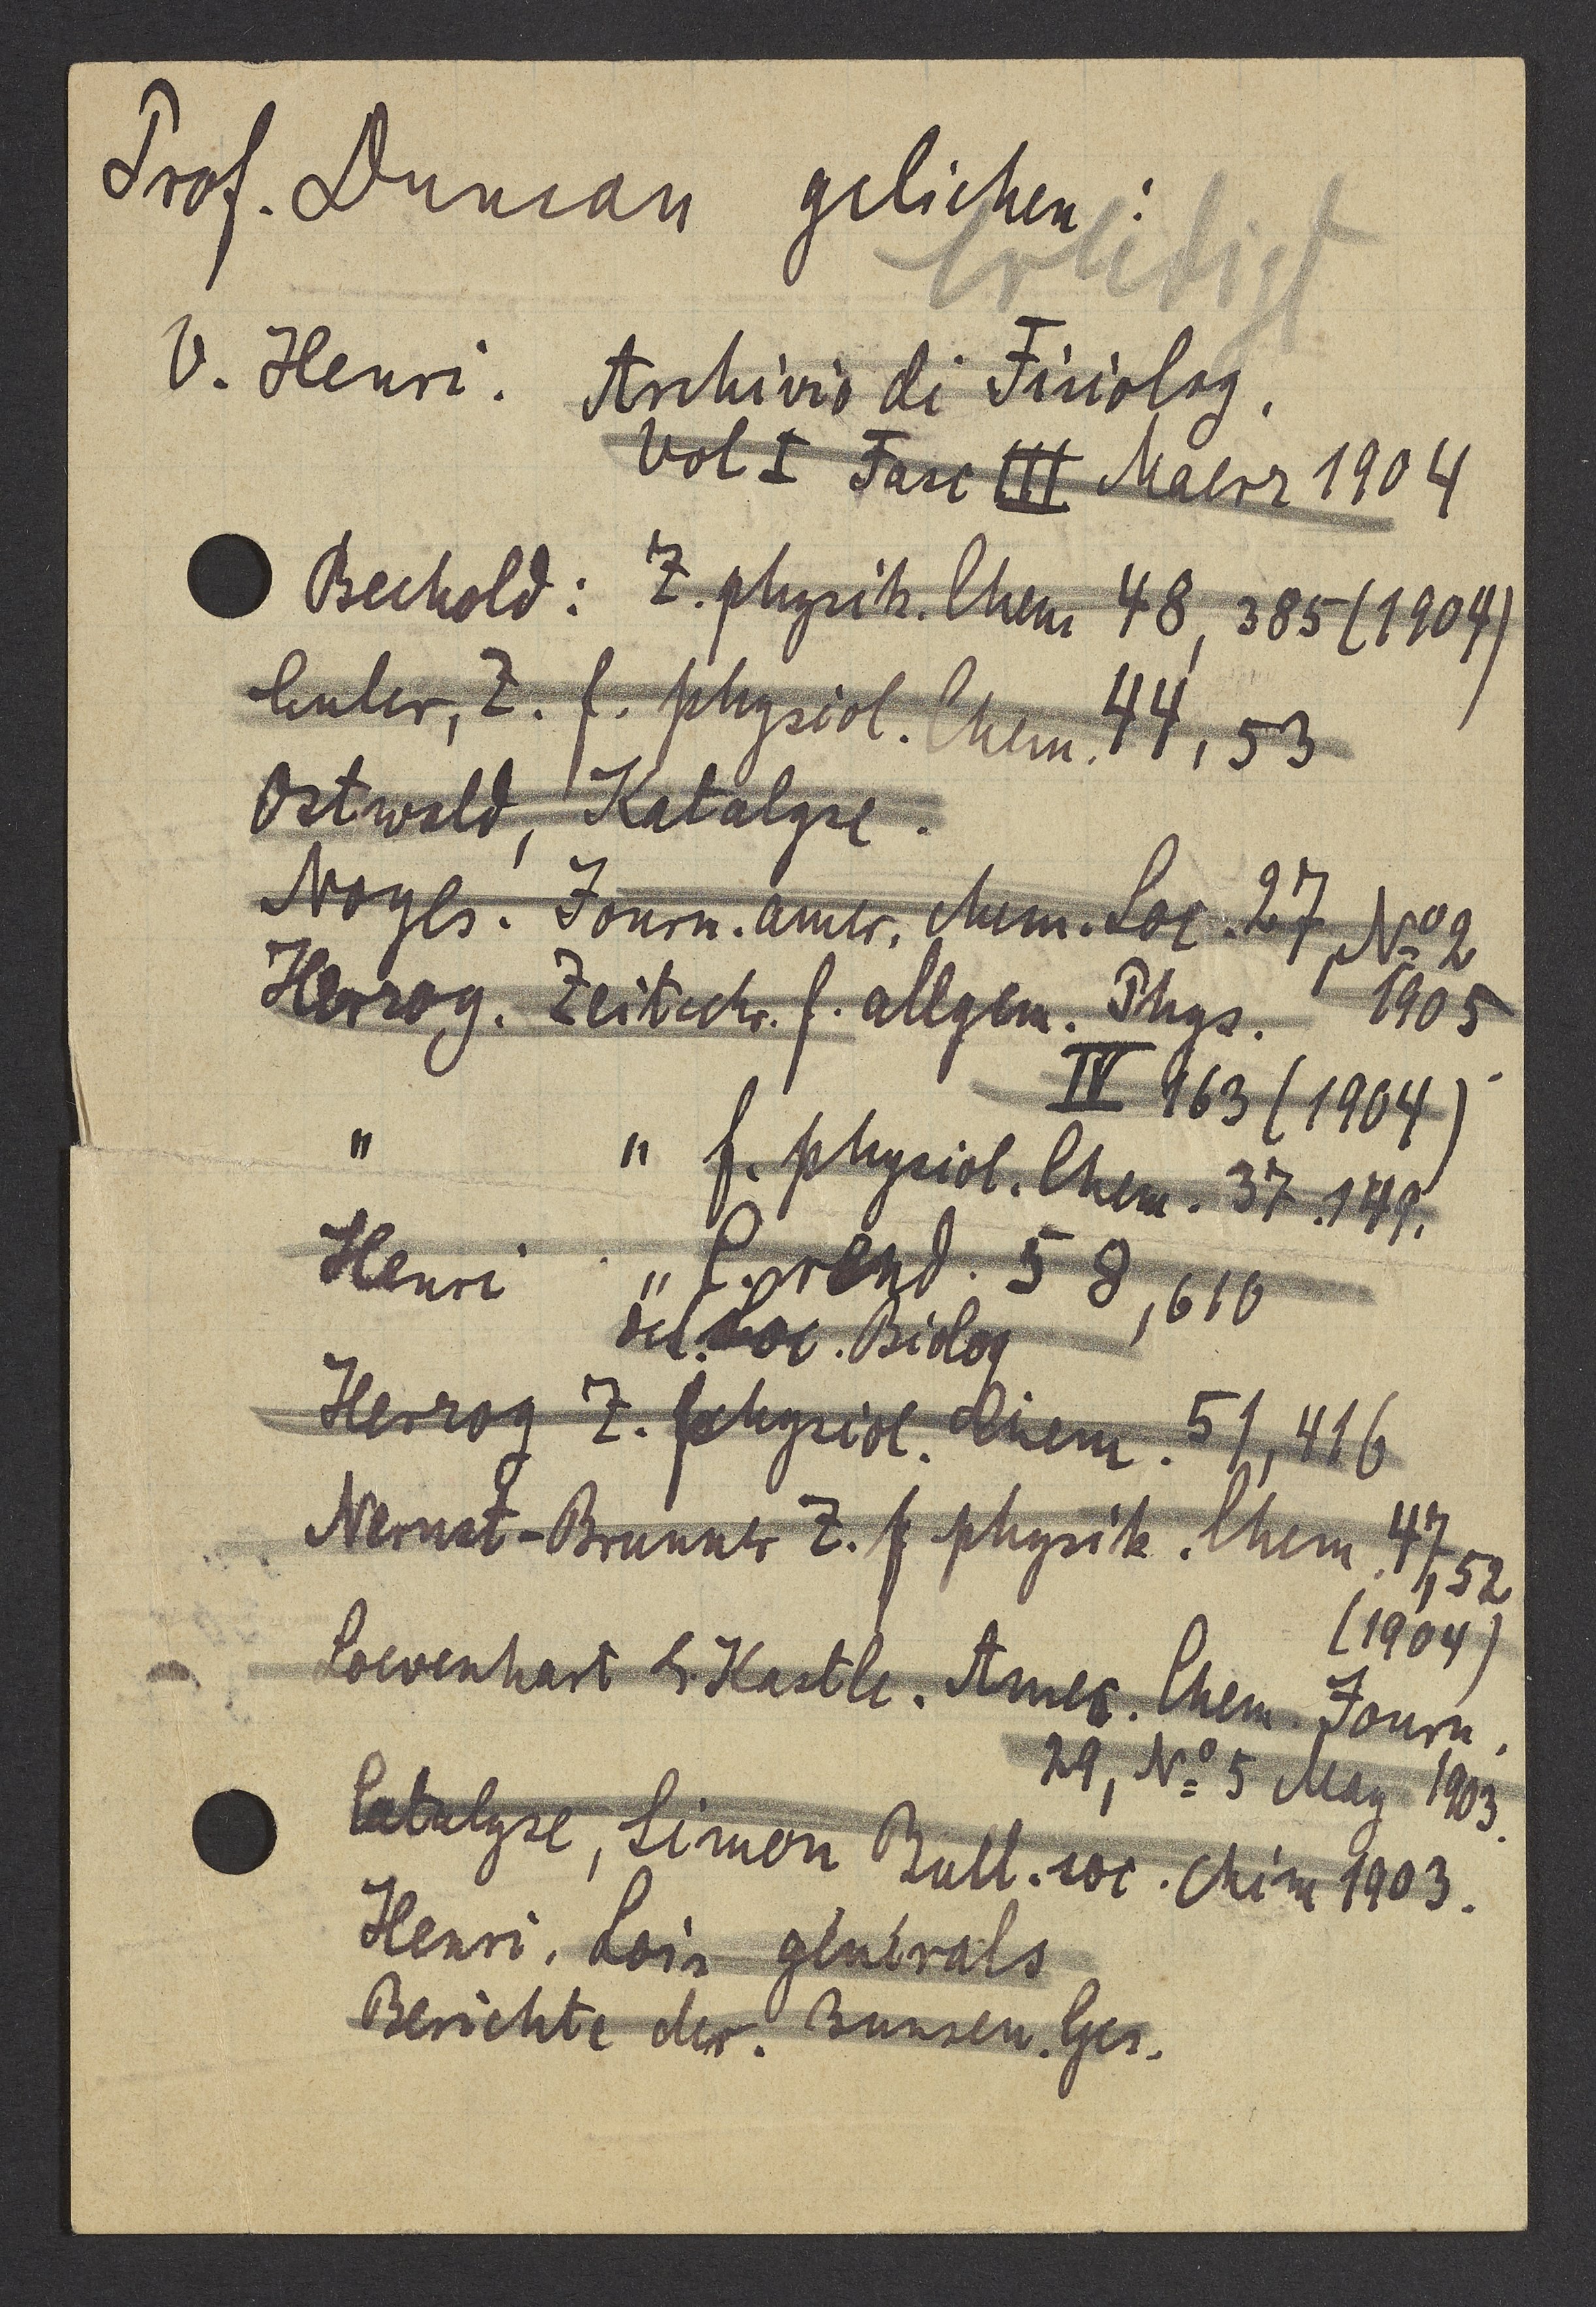 Prof. Duncan geliehen:
Erledigt
V. Henri. Archivio di Fisiolog.
Vol I Fasc III Maerz 1904
Bechold: Z. physik. Chem 48, 385 (1904)
Euler, Z. f. physiol. Chem. 44, 53
Ostwald, Katalyse.
Noyes. Journ. amer. chem. Soc. 27, No 2
1905
Herzog. Zeitschr. f. allgem. Phys.
IV 163 (1904)
" " f. physiol. Chem. 37. 149.
Henri " C. rend. 58, 610
del. Soc. Biolog
Herzog Z. f physiol. Chem. 51, 416
Nernst-Brunner Z. f physik. Chem. 47, 52
(1904)
Loevenhart & Kastle. Amer. Chem. Journ.
29, No 5 May 1903.
Catalyse, Simon Bull. soc. chim 1903.
Henri. Lois générals
Berichte der. Bunsen. Ges.